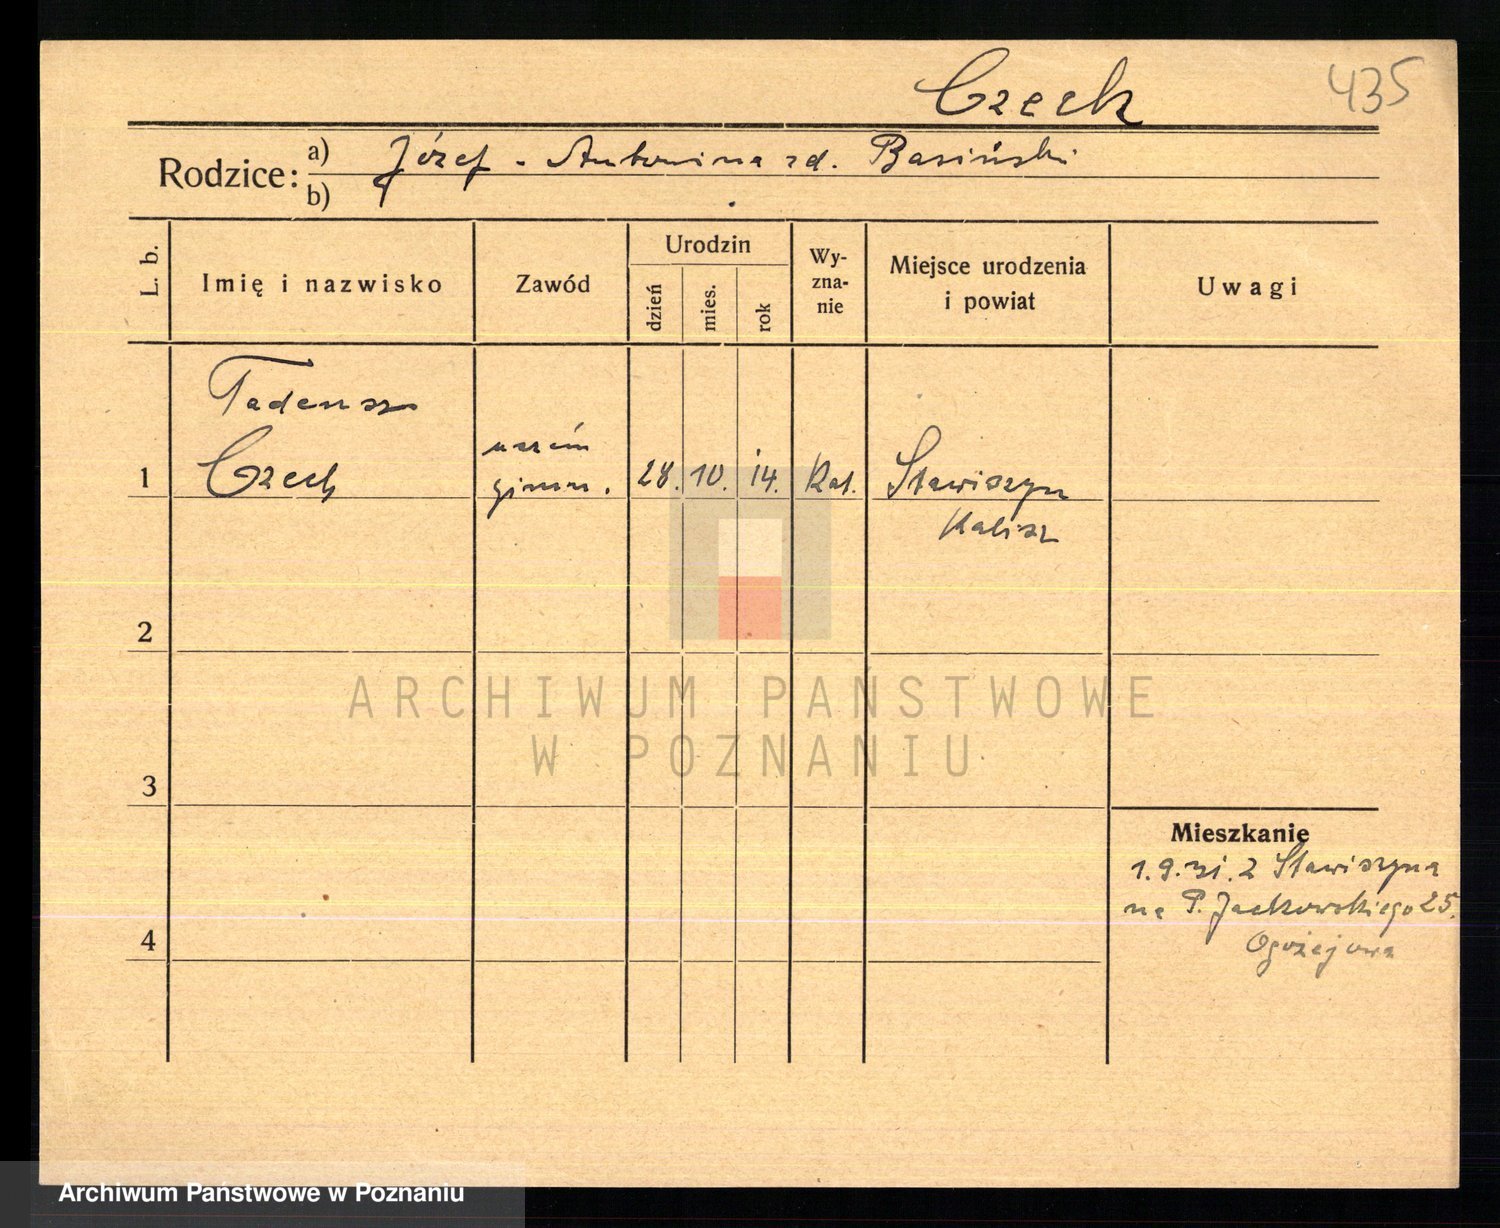 Czech 435
Rodzice: a) Józef - Antonina zd. Basiński
b)
L. b. Imię i nazwisko Zawód Urodzin dzień mies. rok Wy-zna-nie Miejsce urodzenia i powiat Uwagi
Tadeusz
1 Czech uczeń gimn. 28. 10. 14. Kat. Stawiszyn
Kalisz
2
ARCHIWUM PAŃSTWOWE
W POZNANIU
3
Mieszkanie
1.9.31. z Stawiszyna
na P. Jackowskiego 25.
4
Archiwum Państwowe w Poznaniu